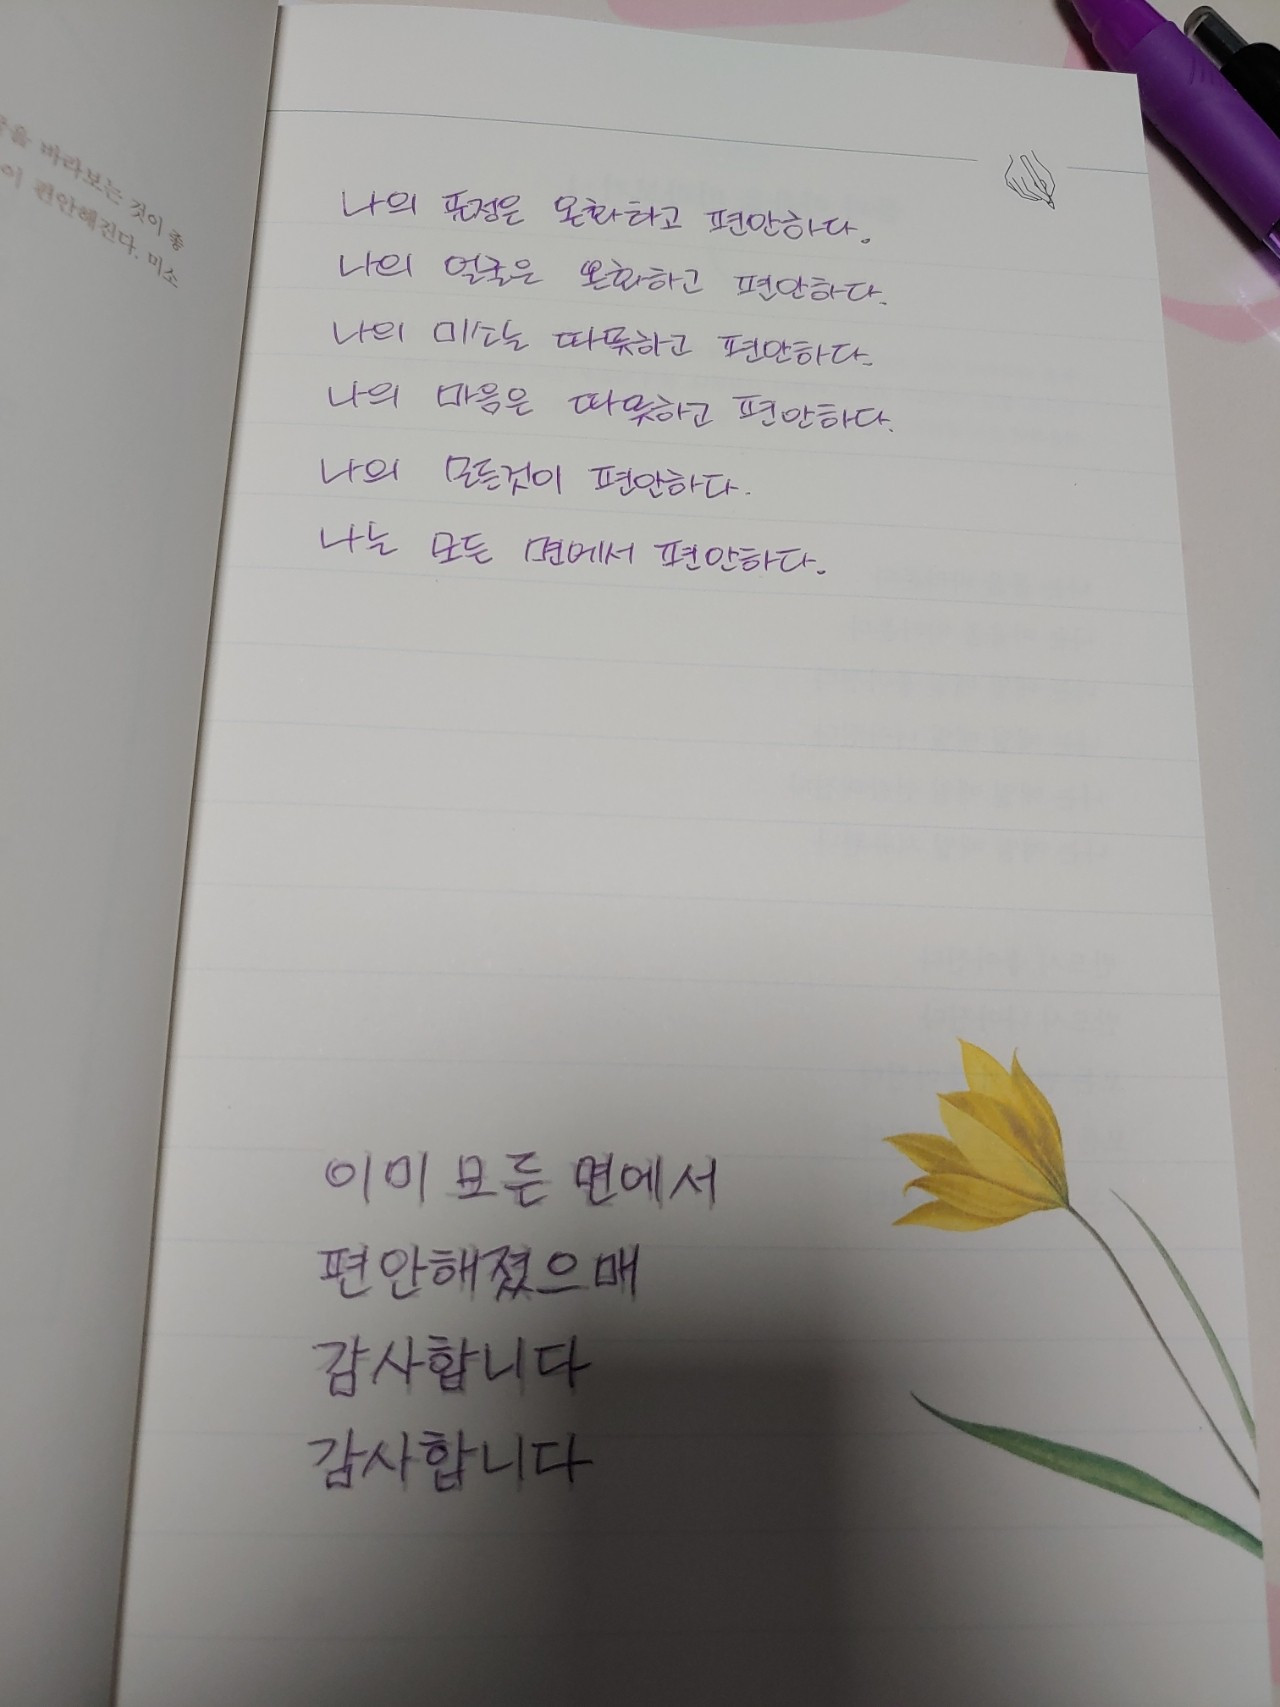 을 바라보는 것이 좋
이 편안해진다. 미소
나의 표정은 온화하고 편안하다.
나의 얼굴은 온화하고 편안하다.
나의 미소는 따뜻하고 편안하다.
나의 마음은 따뜻하고 편안하다.
나의 모든것이 편안하다.
나는 모든 면에서 편안하다.
이미 모든 면에서
편안해졌으매
감사합니다
감사합니다